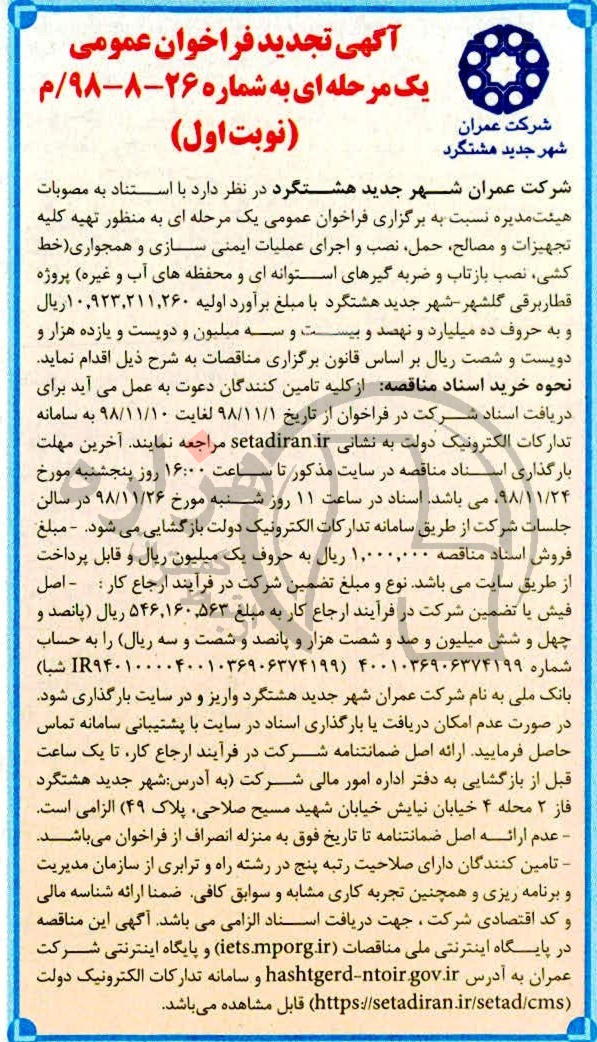 آگهی تجدید فراخوان عمومی
یک مرحله ای به شماره ۲۶-۸-۹۸/م
(نوبت اول)
شرکت عمران
شهر جدید هشتگرد
شرکت عمران شهر جدید هشتگرد در نظر دارد با استناد به مصوبات
هیئت‌مدیره نسبت به برگزاری فراخوان عمومی یک مرحله ای به منظور تهیه کلیه
تجهیزات و مصالح، حمل، نصب و اجرای عملیات ایمنی سازی و همجواری(خط
کشی، نصب بازتاب و ضربه گیرهای استوانه ای و محفظه های آب و غیره) پروژه
قطاربرقی گلشهر-شهر جدید هشتگرد با مبلغ برآورد اولیه ۱۰,۹۲۳,۲۱۱,۲۶۰ریال
و به حروف ده میلیارد و نهصد و بیست و سه میلیون و دویست و یازده هزار و
دویست و شصت ریال بر اساس قانون برگزاری مناقصات به شرح ذیل اقدام نماید.
نحوه خرید اسناد مناقصه: ازکلیه تامین کنندگان دعوت به عمل می آید برای
دریافت اسناد شرکت در فراخوان از تاریخ ۹۸/۱۱/۱ لغایت ۹۸/۱۱/۱۰ به سامانه
تدارکات الکترونیک دولت به نشانی setadiran.ir مراجعه نمایند. آخرین مهلت
بارگذاری اسناد مناقصه در سایت مذکور تا ساعت ۱۶:۰۰ روز پنجشنبه مورخ
۹۸/۱۱/۲۴، می باشد. اسناد در ساعت ۱۱ روز شنبه مورخ ۹۸/۱۱/۲۶ در سالن
جلسات شرکت از طریق سامانه تدارکات الکترونیک دولت بازگشایی می شود. - مبلغ
فروش اسناد مناقصه ۱,۰۰۰,۰۰۰ ریال به حروف یک میلیون ریال و قابل پرداخت
از طریق سایت می باشد. نوع و مبلغ تضمین شرکت در فرآیند ارجاع کار : - اصل
فیش یا تضمین شرکت در فرآیند ارجاع کار به مبلغ ۵۴۶,۱۶۰,۵۶۳ ریال (پانصد و
چهل و شش میلیون و صد و شصت هزار و پانصد و شصت و سه ریال) را به حساب
شماره ۴۰۰۱۰۳۶۹۰۶۳۷۴۱۹۹ (IR۹۴۰۱۰۰۰۰۴۰۰۱۰۳۶۹۰۶۳۷۴۱۹۹ شبا)
بانک ملی به نام شرکت عمران شهر جدید هشتگرد واریز و در سایت بارگذاری شود.
در صورت عدم امکان دریافت یا بارگذاری اسناد در سایت با پشتیبانی سامانه تماس
حاصل فرمایید. ارائه اصل ضمانتنامه شرکت در فرآیند ارجاع کار، تا یک ساعت
قبل از بازگشایی به دفتر اداره امور مالی شرکت (به آدرس:شهر جدید هشتگرد
فاز ۲ محله ۴ خیابان نیایش خیابان شهید مسیح صلاحی، پلاک ۴۹) الزامی است.
- عدم ارائه اصل ضمانتنامه تا تاریخ فوق به منزله انصراف از فراخوان می‌باشد.
- تامین کنندگان دارای صلاحیت رتبه پنج در رشته راه و ترابری از سازمان مدیریت
و برنامه ریزی و همچنین تجربه کاری مشابه و سوابق کافی. ضمنا ارائه شناسه مالی
و کد اقتصادی شرکت ، جهت دریافت اسناد الزامی می باشد. آگهی این مناقصه
در پایگاه اینترنتی ملی مناقصات (iets.mporg.ir) و پایگاه اینترنتی شرکت
عمران به آدرس hashtgerd-ntoir.gov.ir و سامانه تدارکات الکترونیک دولت
(https://setadiran.ir/setad/cms) قابل مشاهده می‌باشد.